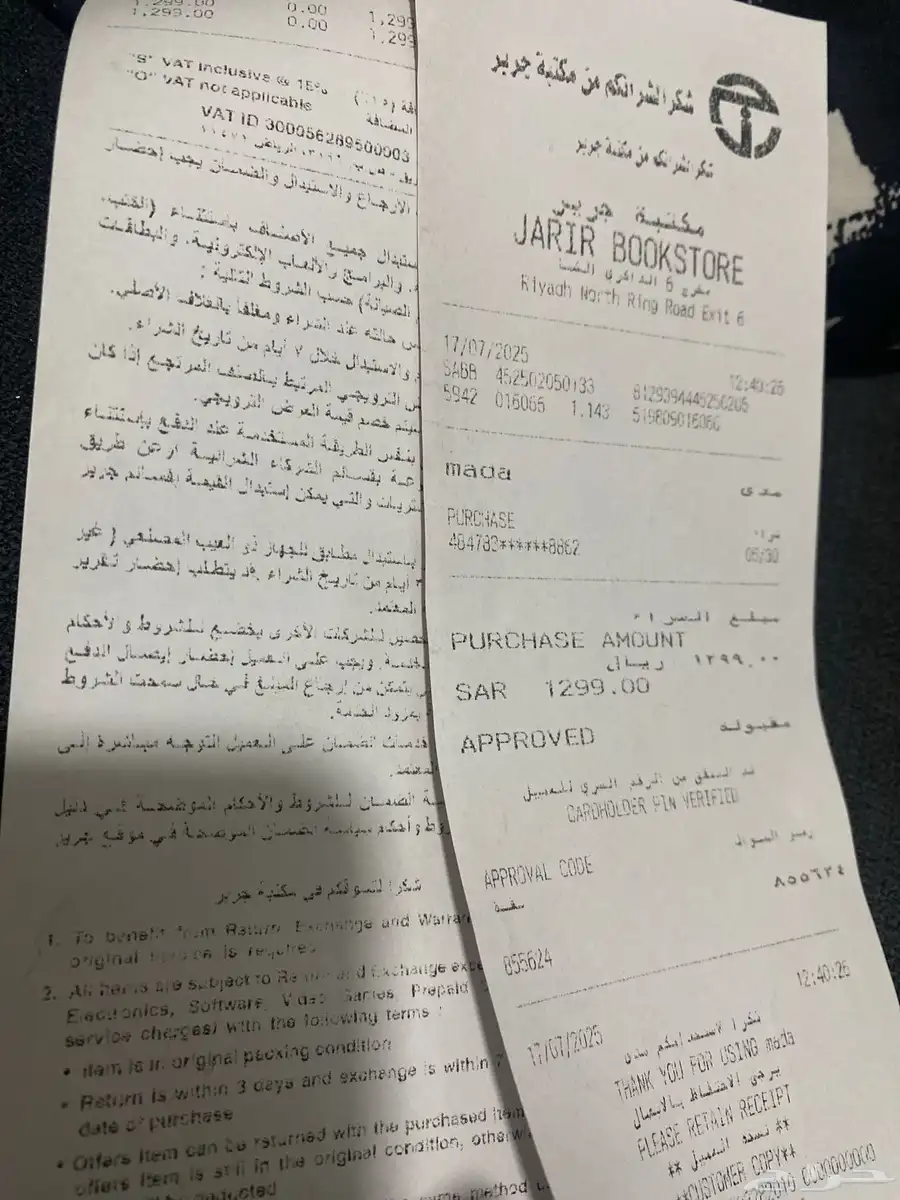 1,299.00 0.00 1,299
1,299.00 0.00 1,299
"S" VAT Inclusive @ 15%
"O" VAT not applicable
المضافة
VAT ID 300056289500003
الارجاع والاستبدال والضمان يجب إحضار
ستبدال جميع الأصناف باستثناء (الكتب،
والبرامج والألعاب الإلكترونية، والبطاقات
الصيانة) حسب الشروط التالية :
حالته عند الشراء ومغلفا بالغلاف الأصلي.
والاستبدال خلال ٧ أيام من تاريخ الشراء.
الترويجي المرتبط بالصنف المرتجع إذا كان
سيتم خصم قيمة العرض الترويجي.
بنفس الطريقة المستخدمة عند الدفع باستثناء
بقسائم الشركاء الشرائية أو عن طريق
والتي يمكن إستبدال القيمة بقسائم جرير
باستبدال مطابق للجهاز ذو العيب المصنعي ( غير
أيام من تاريخ الشراء قد يتطلب إحضار تقرير
المعتمد.
للشركات الأخرى يخضع للشروط والأحكام
ويجب على العميل إحضار إيصال الدفع
يتمكن من إرجاع المبلغ في حال سمحت الشروط
بمزود الخدمة.
خدمات الضمان على العميل التوجه مباشرة إلى
المعتمد.
الضمان للشروط والأحكام الموضحة في دليل
وأحكام سياسة الضمان الموضحة في موقع جرير
شكرا لتسوقكم في مكتبة جرير
1. To benefit from Return, Exchange and Warran
original invoice is required
2. All items are subject to Return and Exchange exce
Electronics, Software, Video Games, Prepaid
service charges) with the following terms :
• Item is in original packing condition
• Return is within 3 days and exchange is within 7
date of purchase
• Offers item can be returned with the purchased item
offers item is still in the original condition, otherw
method
شكرا لشرائكم من مكتبة جرير
شكرا لشرائكم من مكتبة جرير
مكتبة جرير
JARIR BOOKSTORE
مخرج 6 الدائري الشما
Riyadh North Ring Road Exit 6
17/07/2025 12:40:26
SABB 452502050133 8129394445250205
5942 016065 1.143 519809016060
mada مدى
PURCHASE شراء
484783******8862 05/30
مبلغ الشراء
PURCHASE AMOUNT
١٢٩٩.٠٠ ريال
SAR 1299.00
APPROVED مقبولة
تم التحقق من الرقم السري للعميل
CARDHOLDER PIN VERIFIED
APPROVAL CODE
٨٥٥٦٢٤
855624
17/07/2025 12:40:26
شكرا لاستخدامكم مدى
THANK YOU FOR USING mada
يرجى الاحتفاظ بالإيصال
PLEASE RETAIN RECEIPT
** نسخة العميل **
**CUSTOMER COPY**